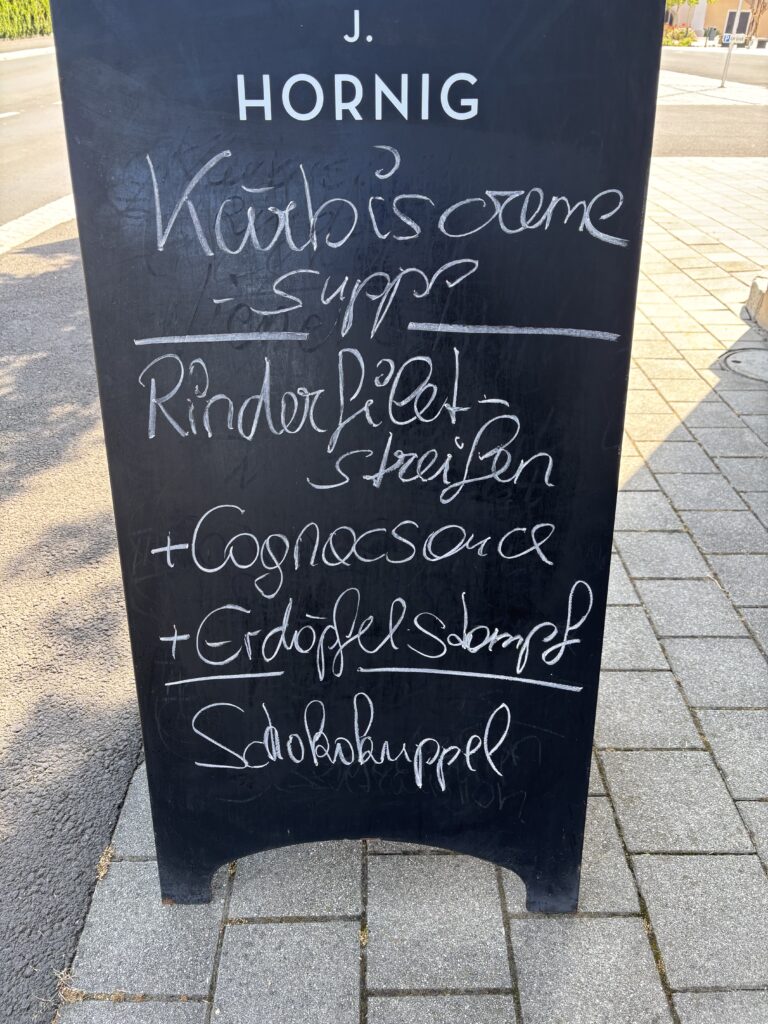 J.
HORNIG
Kürbiscreme
-suppe
Rinderfilet-
streifen
+Cognacsauce
+Erdöpfelstampf
Schokokuppel